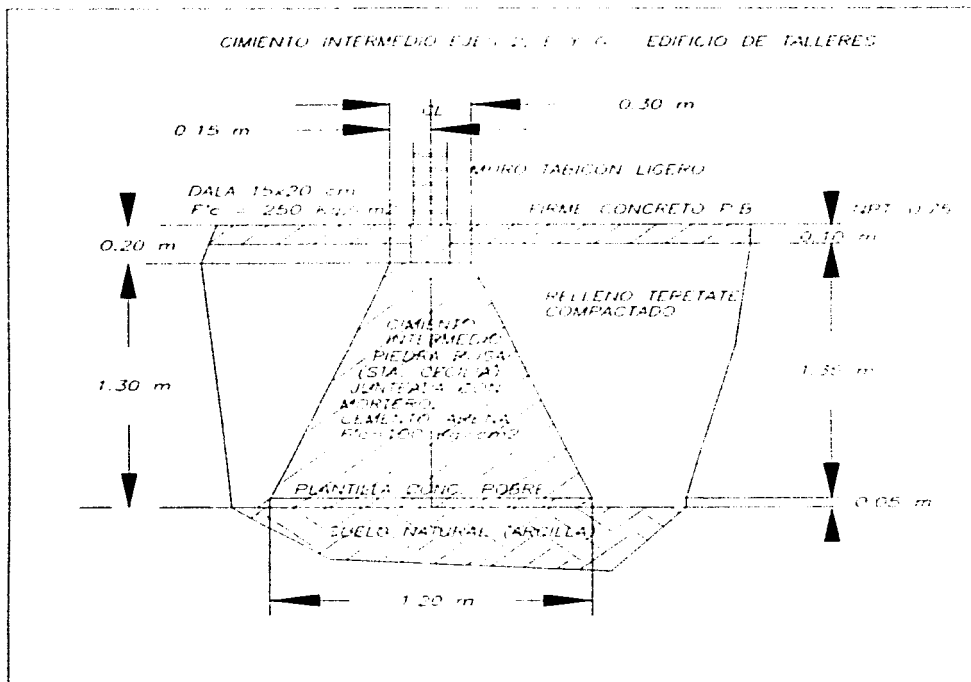 CIMIENTO INTERMEDIO EJES D, E Y G EDIFICIO DE TALLERES
0.30 m
CL
0.15 m
MURO TABICON LIGERO
DALA 15x20 cm
F'c = 250 Kg/cm2
FIRME CONCRETO P.B.
NPT 0.75
0.20 m
0.10 m
RELLENO TEPETATE
COMPACTADO
CIMIENTO
INTERMEDIO
PIEDRA
(STA. CECILIA)
JUNTEADA CON
MORTERO,
CEMENTO ARENA
F'c=100 Kg/cm2
1.30 m
1.35 m
PLANTILLA CONC. POBRE
0.05 m
SUELO NATURAL (ARCILLA)
1.20 m